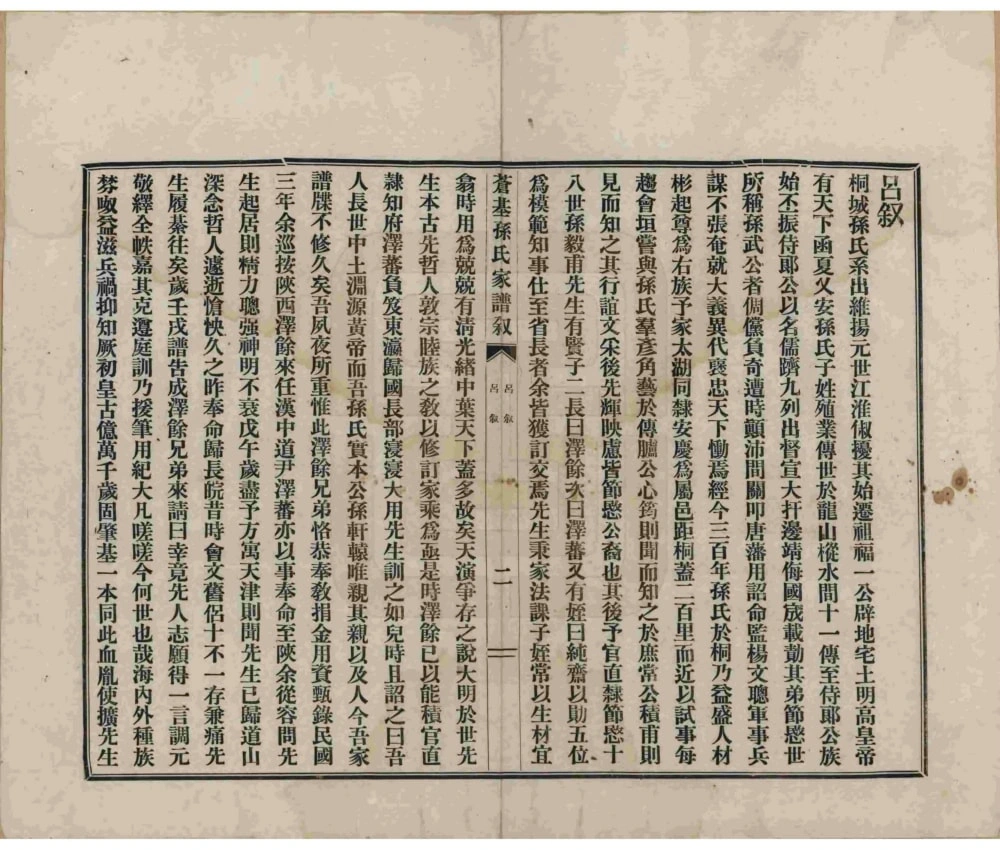 呂叙
桐城孫氏系出維揚元世江淮俶擾其始遷祖福一公辟地宅土明高皇帝
有天下函夏乂安孫氏子姓殖業傳世於龍山樅水間十一傳至侍郞公族
始丕振侍郞公以名儒躋九列出督宣大扞邊靖侮國宬載勣其弟節愍世
所稱孫武公者倜儻負奇遭時顚沛問關叩唐藩用詔命監楊文聰軍事兵
謀不張奄就大義異代襃忠天下慟焉經今三百年孫氏於桐乃益盛人材
彬彬起尊爲右族予家太湖同隸安慶爲屬邑距桐蓋二百里而近以試事每
趨會垣嘗與孫氏羣彥角藝於傳臚公心筠則聞而知之於庶常公積甫則
見而知之其行誼文采後先輝映慮皆節愍公裔也其後予官直隸節愍十
八世孫毅甫先生有賢子二長曰澤餘次曰澤蕃又有姪曰純齋以勛五位
爲模範知事仕至省長者余皆獲訂交焉先生秉家法課子姪常以生材宜
蒼基孫氏家譜叙
呂叙
呂叙
二
翕時用爲兢兢有淸光緖中葉天下蓋多故矣天演爭存之說大明於世先
生本古先哲人敦宗睦族之敎以修訂家乘爲亟是時澤餘已以能積官直
隸知府澤蕃負笈東瀛歸國長部寖寖大用先生訓之如兒時且詔之曰吾
人長世中土淵源黃帝而吾孫氏實本公孫軒轅唯親其親以及人今吾家
譜牒不修久矣吾夙夜所重惟此澤餘兄弟恪恭奉敎捐金用資甄錄民國
三年余巡按陝西澤餘來任漢中道尹澤蕃亦以事奉命至陝余從容問先
生起居則精力聰强神明不衰戊午歲盡予方寓天津則聞先生已歸道山
深念哲人遽逝愴怏久之昨奉命歸長皖昔時會文舊侶十不一存兼痛先
生履綦往矣歲壬戌譜告成澤餘兄弟來請曰幸竟先人志願得一言調元
敬繹全帙嘉其克遵庭訓乃援筆用紀大凡嗟嗟今何世也哉海內外種族
棼呶益滋兵禍抑知厥初皇古億萬千歲固肇基一本同此血胤使擴先生